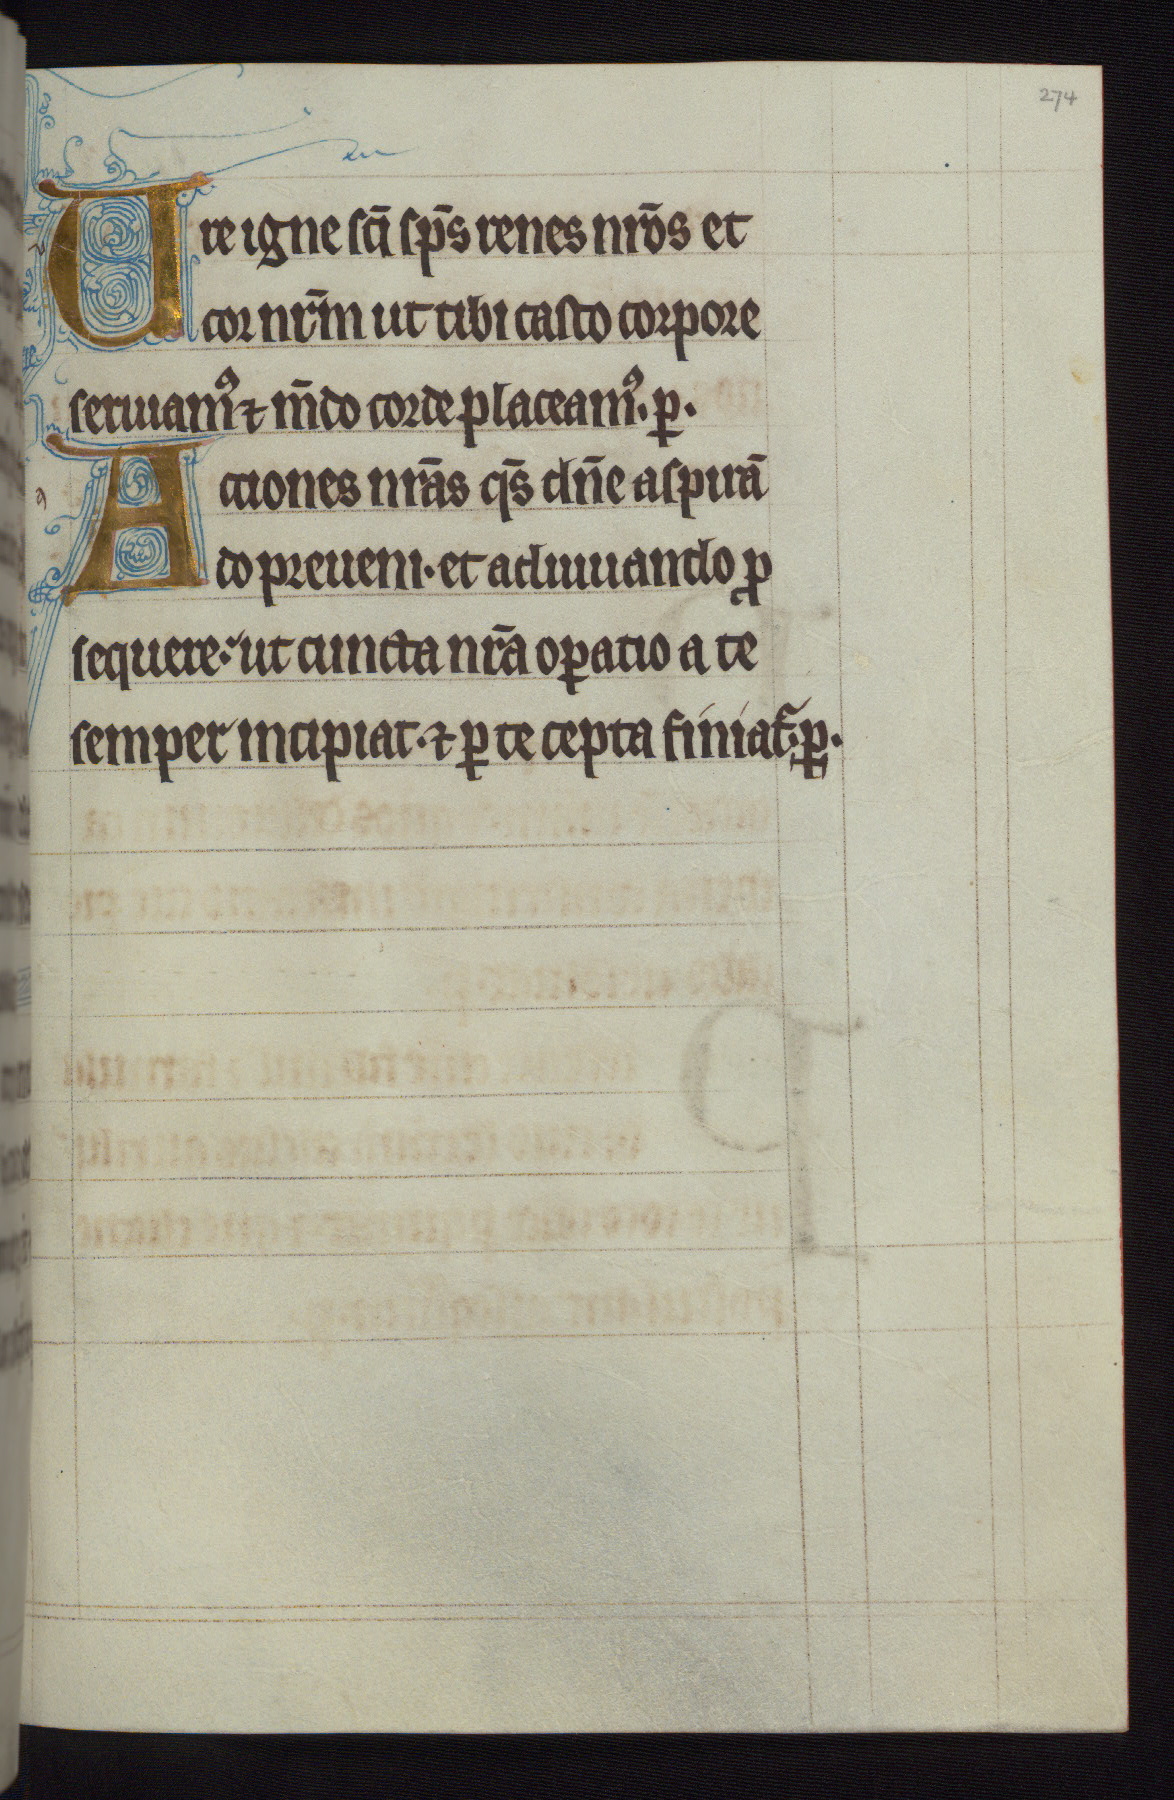 274
Ure igne sc̄i sp̄s renes nr̄os et
cor nr̄m ut tibi casto corpore
seruiamꝰ ⁊ m̄do corde placeamꝰ. p̱.
Actiones nr̄as qs̄ dn̄e aspirā
do preueni. et adiuuando ꝓ
sequere. ut cuncta nr̄a oꝑatio a te
semper incipiat. ⁊ ꝑ te cepta finiat᷑. ꝑ.